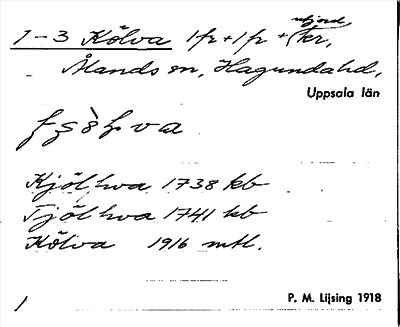 1-3 Kölva 1 fr + 1 fr + ofjord. kr,
Ålands sn, Hagunda hd,
Uppsala län
Kjölhva 1738 kb
Tjölhva 1741 kb
Kölva 1916 mtl.
P. M. Lijsing 1918
1